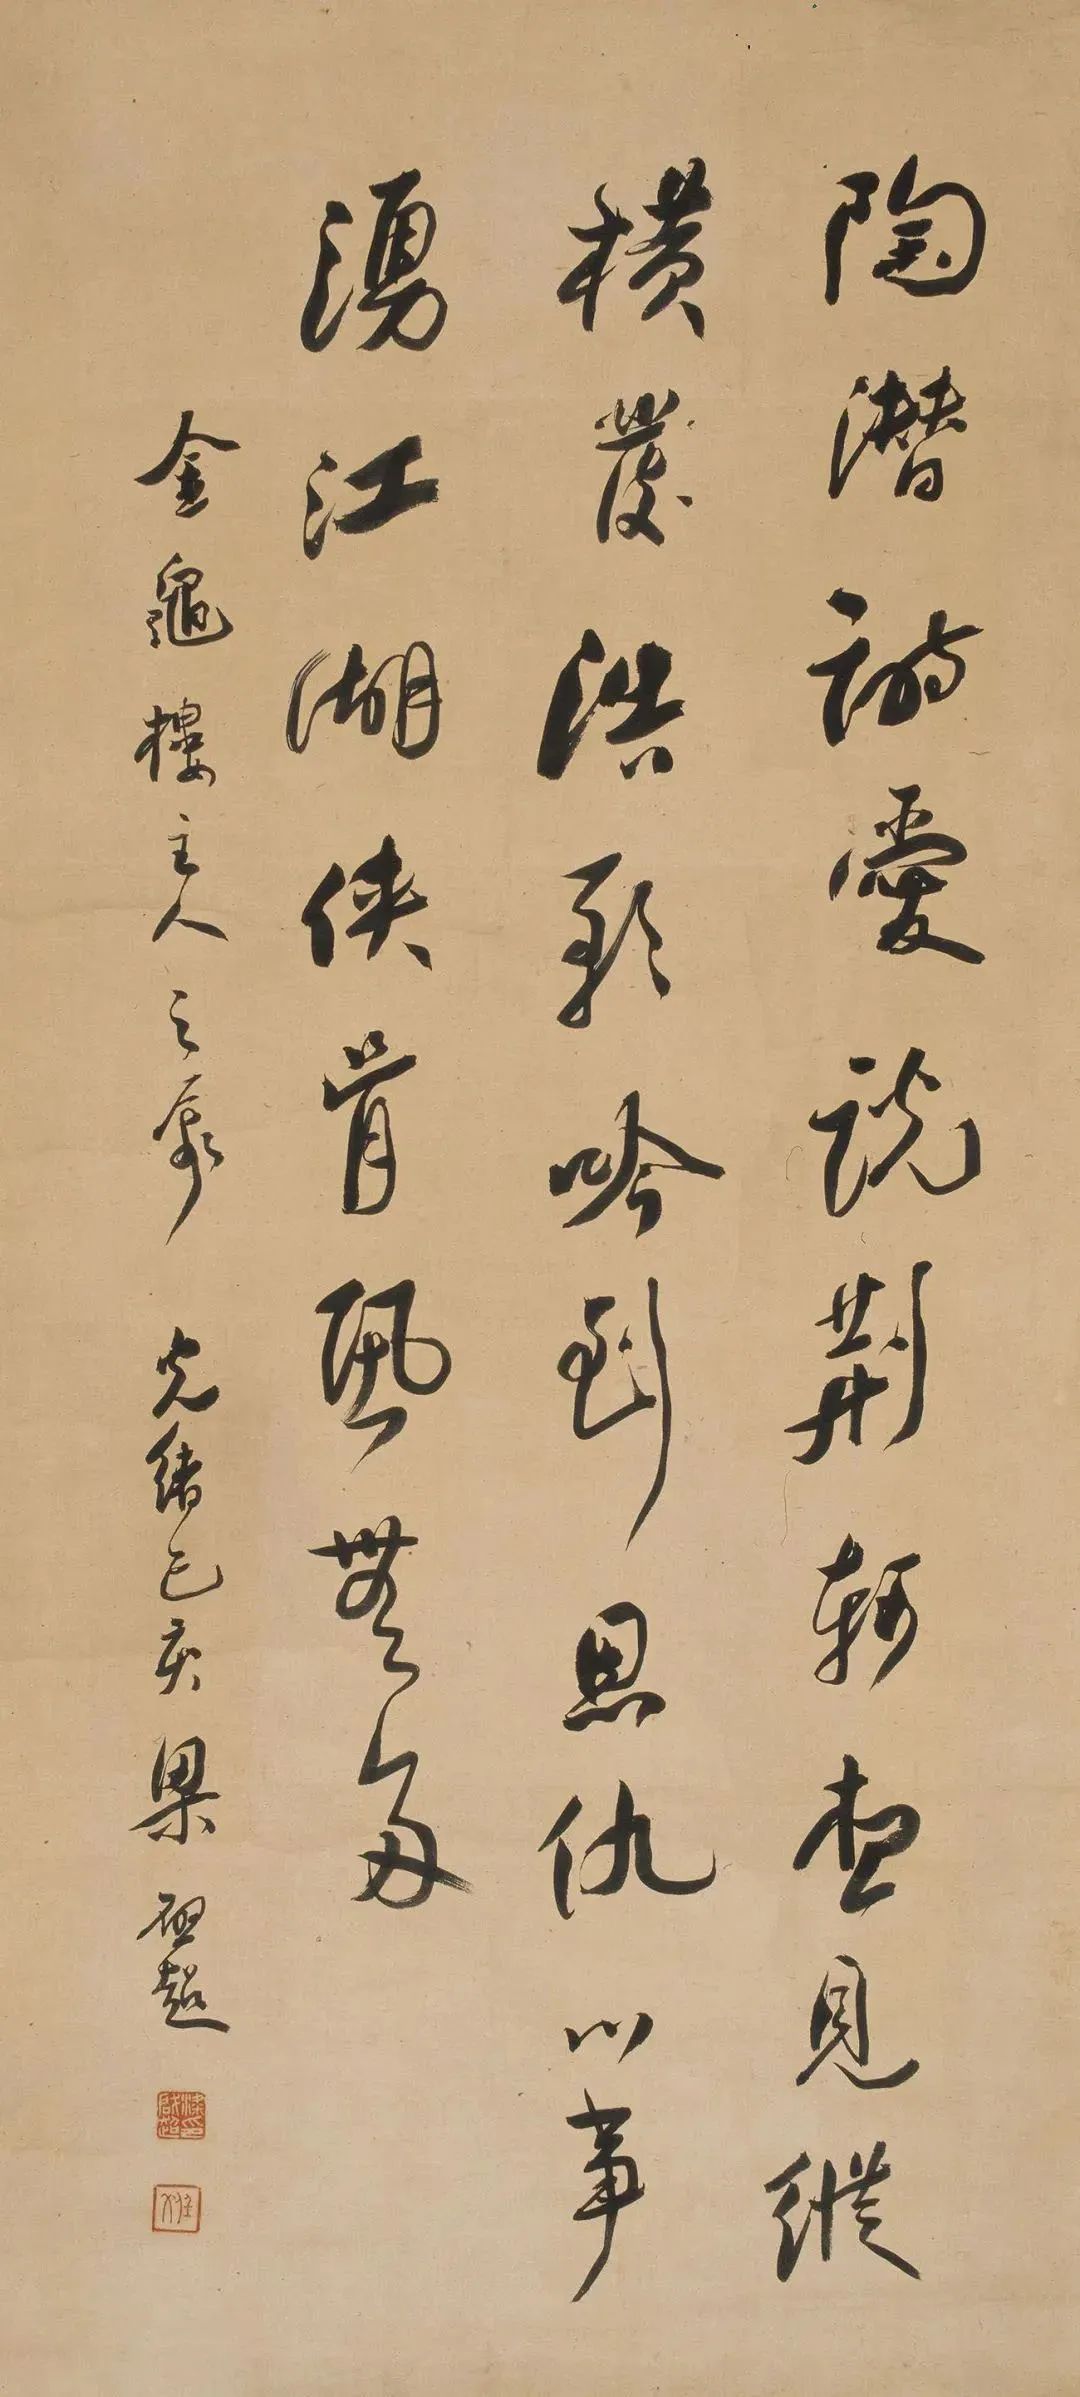 陶潛詩愛說荊軻想見縱
橫發浩歌吟到恩仇心事
湧江湖俠骨恐無多
金龜樓主人之屬 光緒己亥 梁啟超
梁啟超印